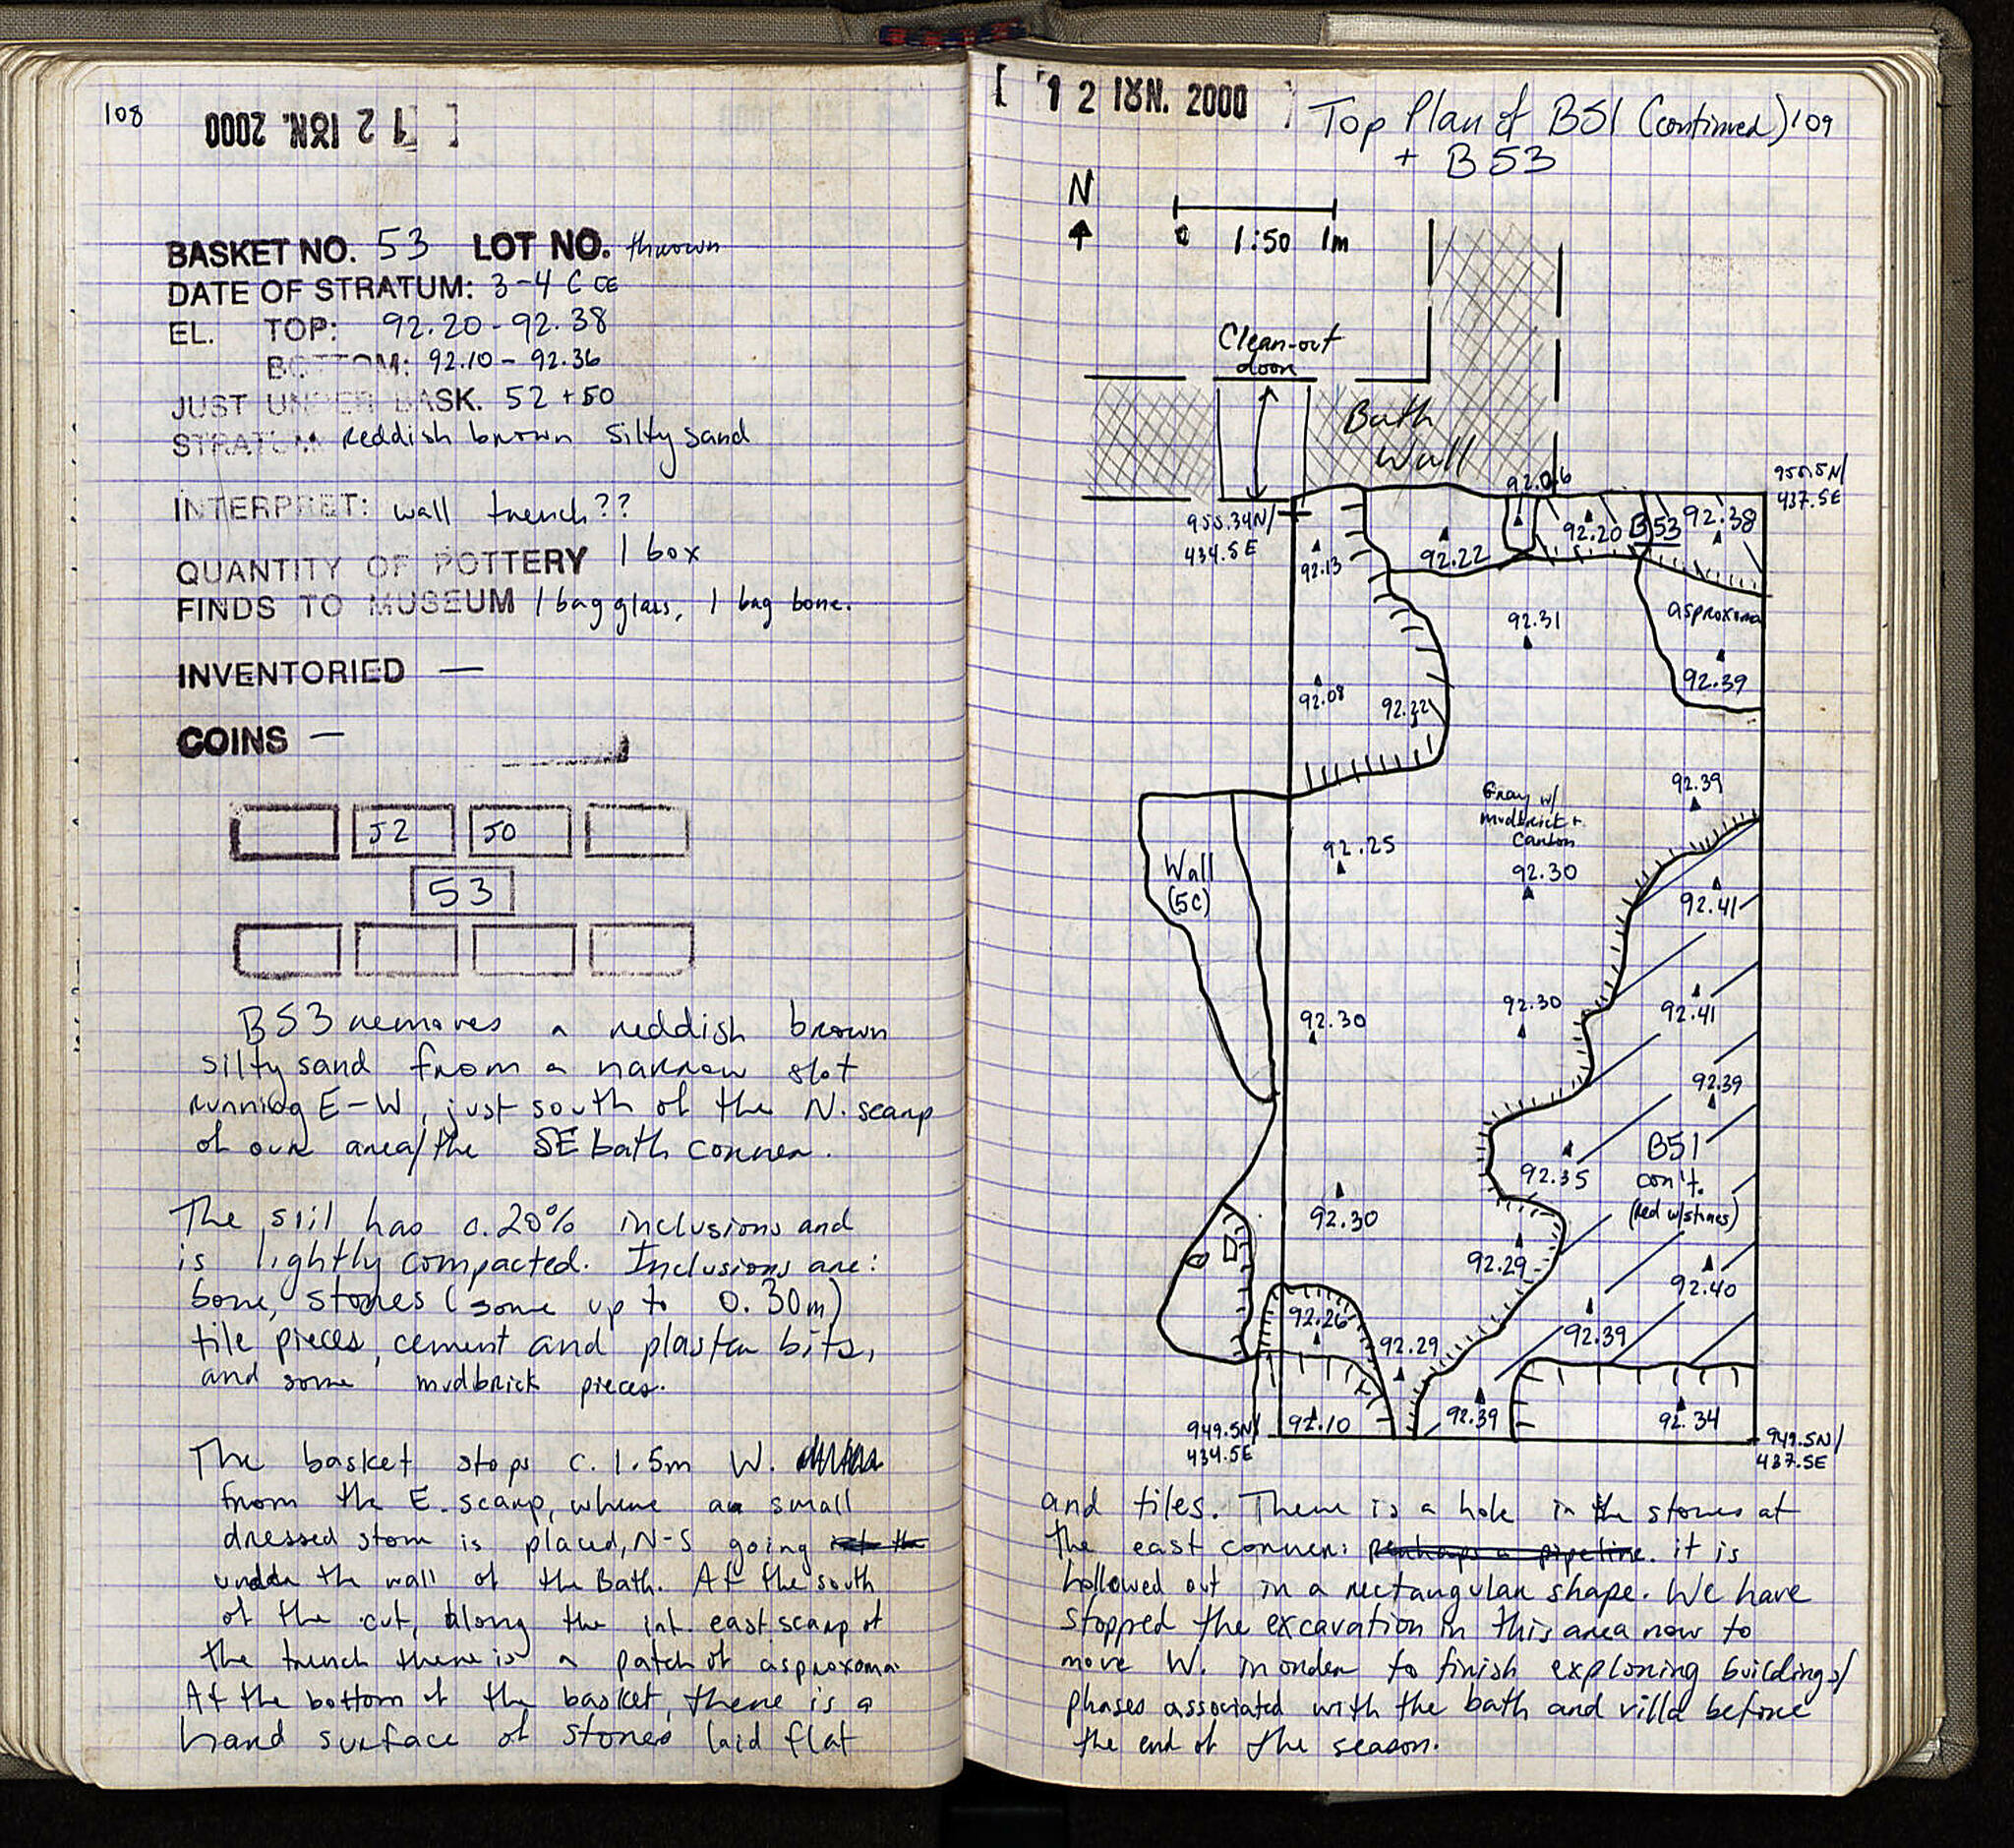 108
[ 1 2 IOYN. 2000 ]
BASKET NO. 53 LOT NO. thrown
DATE OF STRATUM: 3-4 C CE
EL. TOP: 92.20-92.38
BOTTOM: 92.10-92.36
JUST UNDER BASK. 52+50
STRATUM: Reddish brown silty sand
INTERPRET: wall trench??
QUANTITY OF POTTERY 1 box
FINDS TO MUSEUM 1 bag glass, 1 bag bone.
INVENTORIED —
COINS —
52 50
53
B53 removes a reddish brown
silty sand from a narrow slot
running E-W, just south of the N. scarp
of our area/the SE bath corner.
The soil has c.20% inclusions and
is lightly compacted. Inclusions are:
bone, stones (some up to 0.30m)
tile pieces, cement and plaster bits,
and some mudbrick pieces.
The basket stops c. 1.5m W.
from the E. scarp, where a small
dressed stone is placed, N-S going
under the wall of the Bath. At the south
of the cut, along the int. east scarp of
the trench there is a patch of asproxoma.
At the bottom of the basket, there is a
hard surface of stones laid flat
[ 1 2 IOYN. 2000 ]
Top Plan of B51 (continued) 109
+ B53
N
0 1:50 1m
Clean-out
door
Bath
Wall
955.5N/
437.5E
955.34N/
434.5E
92.06
92.20 B53 92.38
92.22
92.13
asproxoma
92.31
92.39
92.08
92.22
92.39
Gray w/
mudbrick +
Carbon
92.30
92.25
Wall
(5c)
92.41
92.30
92.30
92.41
92.39
B51
con't.
(red w/stones)
92.35
92.30
92.29
92.40
92.26
92.29
92.39
92.10
92.39
92.34
949.5N/
434.5E
949.5N/
437.5E
and tiles. There is a hole in the stones at
the east corner: perhaps a pipeline. it is
hollowed out in a rectangular shape. We have
stopped the excavation in this area now to
move W. in order to finish exploring buildings/
phases associated with the bath and villa before
the end of the season.